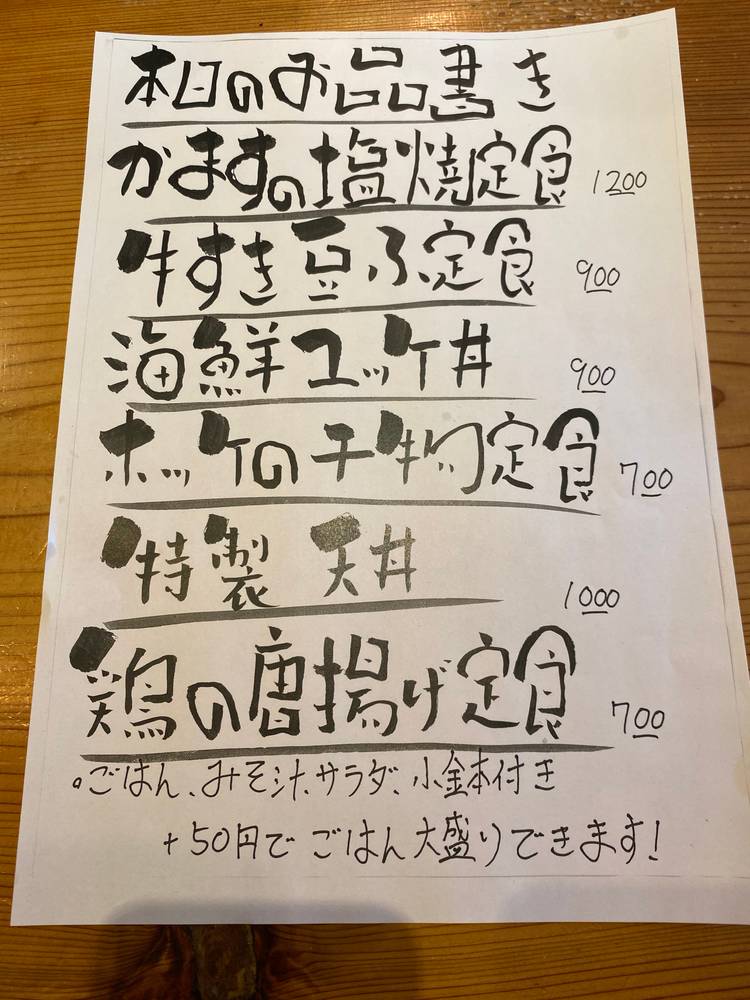 本日のお品書き
かますの塩焼定食 1200
牛すき豆ふ定食 900
海鮮ユッケ丼 900
ホッケの干物定食 700
特製 天丼 1000
鶏の唐揚げ定食 700
。ごはん、みそ汁、サラダ、小鉢付き
+50円で ごはん大盛りできます!